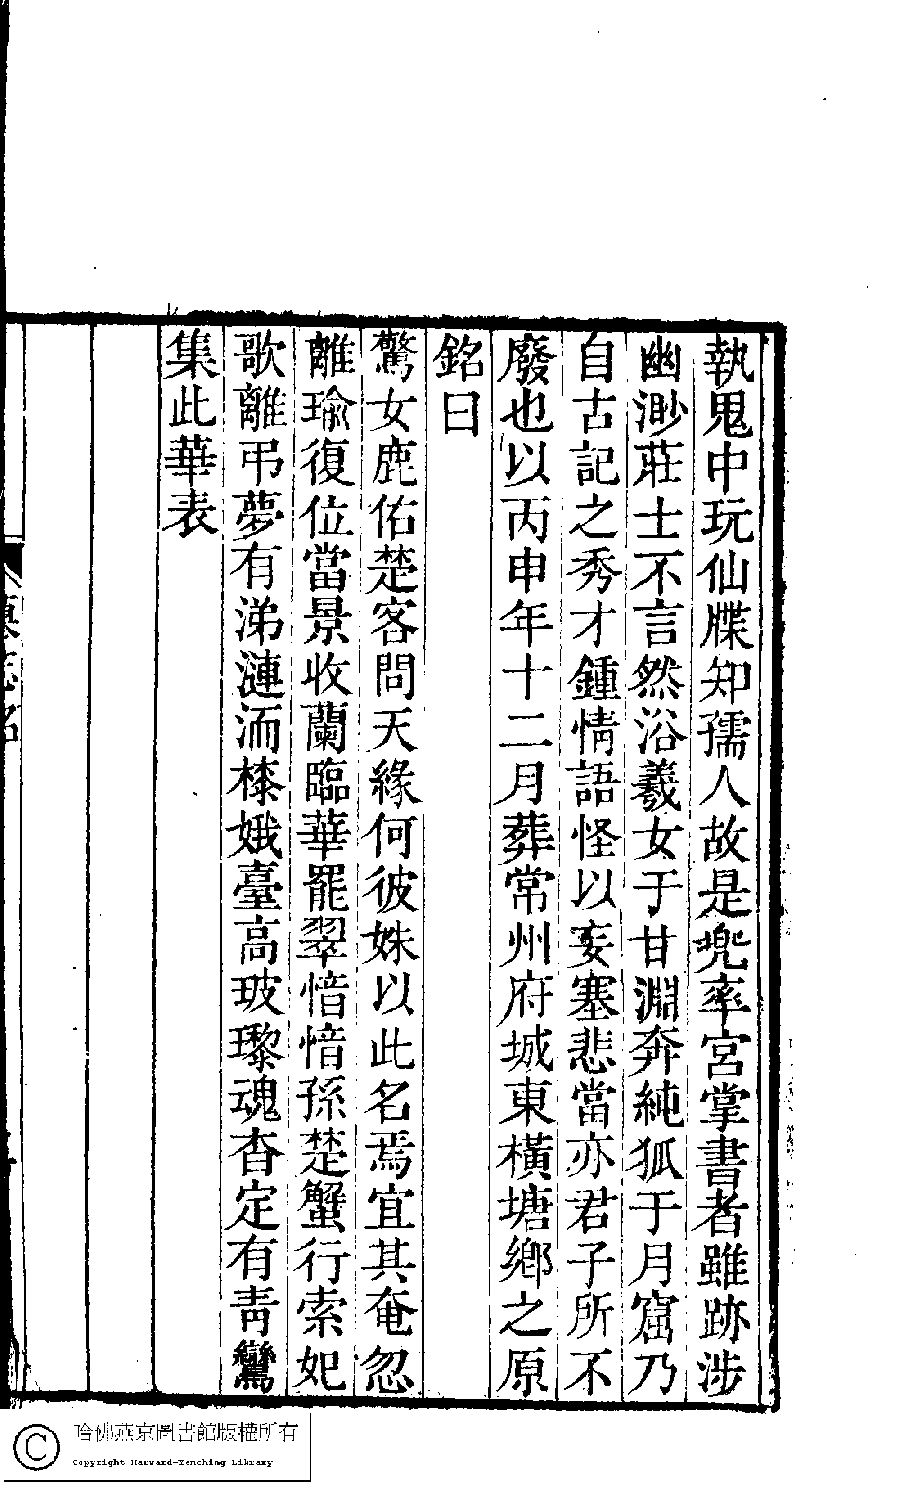 執鬼中玩仙牒知孺人故是兜率宮掌書者雖跡涉
幽渺莊士不言然浴羲女于甘淵奔純狐于月窟乃
自古記之秀才鍾情語怪以妄塞悲當亦君子所不
廢也以丙申年十二月葬常州府城東橫塘鄉之原
銘曰
驚女鹿佑楚客問天緣何彼姝以此名焉宜其奄忽
離瑜復位當景收蘭臨華罷翠愔愔孫楚蟹行索妃
歌離弔夢有涕漣洏榛娥臺高玻瓈魂杳定有青鸞
集此華表
墓志銘
哈佛燕京圖書館版權所有
Copyright Harvard-Yenching Library